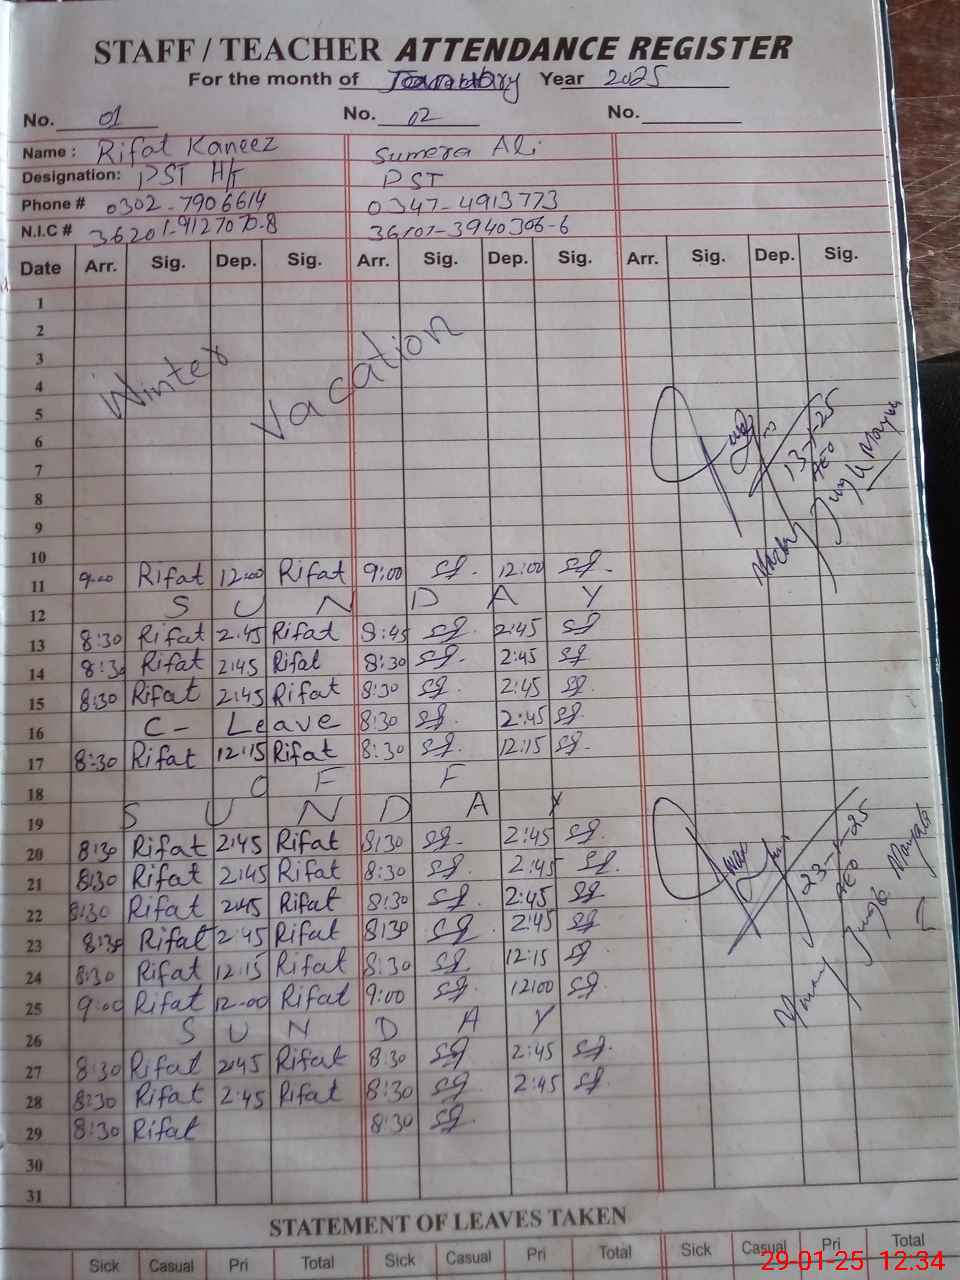 STAFF / TEACHER ATTENDANCE REGISTER
For the month of January Year 2025
No. 01 No. 02 No.
Name : Rifat Kaneez Sumera Ali
Designation: PST H/T PST
Phone # 0302-7906614 0347-4913773
N.I.C #
Date Arr. Sig. Dep. Sig. Arr. Sig. Dep. Sig. Arr. Sig. Dep. Sig.
1
2
3
Winter Vacation
4
5
6
7
8
9
10
13-1-25
AEO
11 9:00 Rifat 12:00 Rifat 9:00 12:00
12 S U N D A Y
13 8:30 Rifat 2:45 Rifat 8:45 2:45
14 8:30 Rifat 2:45 Rifat 8:30 2:45
15 8:30 Rifat 2:45 Rifat 8:30 2:45
16 C- Leave 8:30 2:45
17 8:30 Rifat 12:15 Rifat 8:30 12:15
18 O F F
19 S U N D A Y
20 8:30 Rifat 2:45 Rifat 8:30 2:45
21 8:30 Rifat 2:45 Rifat 8:30 2:45
22 8:30 Rifat 2:45 Rifat 8:30 2:45
23 8:30 Rifat 2:45 Rifat 8:30 2:45
23-1-25
AEO
24 8:30 Rifat 12:15 Rifat 8:30 12:15
25 9:00 Rifat 12:00 Rifat 9:00 12:00
26 S U N D A Y
27 8:30 Rifat 2:45 Rifat 8:30 2:45
28 8:30 Rifat 2:45 Rifat 8:30 2:45
29 8:30 Rifat 8:30
30
31
STATEMENT OF LEAVES TAKEN
Sick Casual Pri Total Sick Casual Pri Total Sick Casual Pri Total
29-01-25 12.34